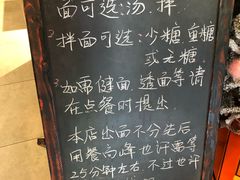 面可选:汤.拌.
拌面可选:沙糖 重糖
或无糖
如需健面 透面等请
在点餐时提出
本店出面不分先后
用餐高峰也许需等
25分钟左右.不过也许